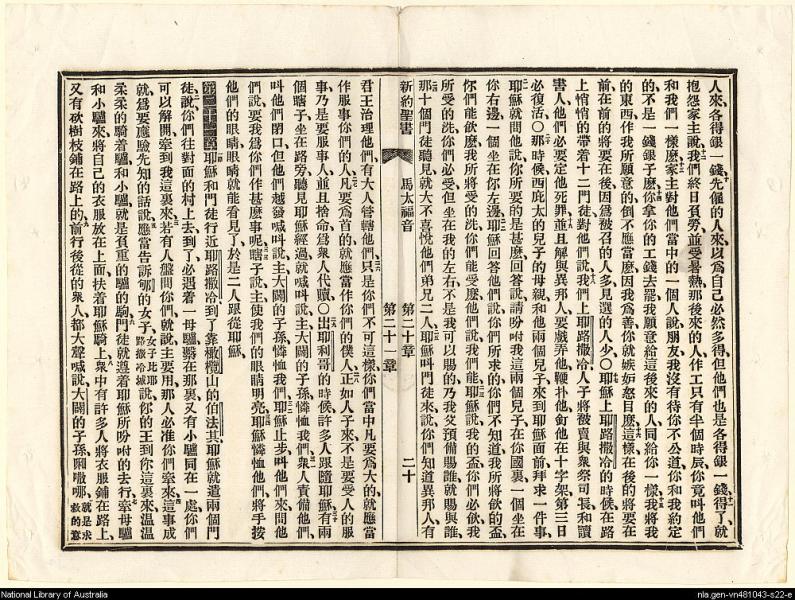 人來、各得銀一錢、先僱的人來以爲自己必然多得、但他們也是各得銀一錢、得了就
抱怨家主說、我們終日負勞、並受暑熱、那後來的人作工只有半個時辰、你竟叫他們
和我們一樣麽、家主對他們當中的一個人說、朋友、我沒有待你不公道、你和我約定
的不是一錢銀子麽、你拿你的工錢去罷、我願意給這後來的人同給你一樣、我將我
的東西作我所願意的、倒不應當麽、因我爲善、你就嫉妒怒目麽、這樣在後的將要在
前、在前的將要在後、因爲被召的人多、見選的人少○耶穌上耶路撒冷的時候、在路
上悄悄的帶着十二門徒、對他們說、我們上耶路撒冷、人子將被賣與衆祭司長和讀
書人、他們必要定他死罪、並且解與異邦人、要戲弄他、鞭朴他、釘他在十字架、第三日
必復活○那時候西庇太的兒子的母親和他兩個兒子來到耶穌面前、拜求一件事、
耶穌就問他說、你所要的是甚麽、回答說、請吩咐我這兩個兒子在你國裏、一個坐在
你右邊、一個坐在你左邊、耶穌回答他們說、你們所求的你們不知道、我所將飲的盃
你們能飲麽、我所將受的洗你們能受麽、他們說、我們能、耶穌說、我的盃你們必飲、我
所受的洗你們必受、但坐在我的左右、不是我可以賜的、乃我父預備賜誰就賜與誰、
那十個門徒聽見就大不喜悅他們弟兄二人、耶穌叫門徒來說、你們知道異邦人有
新約聖書 馬太福音 第二十章 第二十一章 二十
君王治理他們、有大人管轄他們、只是你們不可這樣、你們當中凡要爲大的、就應當
作服事你們的人、凡要爲首的、就應當作你們的僕人、正如人子來、不是要受人的服
事、乃是要服事人、並且捨命爲衆人代贖○出耶利哥的時候、許多人跟隨耶穌、有兩
個瞎子坐在路旁、聽見耶穌經過、就喊叫說、主大闢的子孫憐恤我們、衆人責備他們、
叫他們閉口、但他們越發喊叫說、主大闢的子孫憐恤我們、耶穌止步、叫他們來、問他
們說、要我爲你們作甚麽事呢、瞎子說、主使我們的眼睛明亮、耶穌憐恤他們、將手按
他們的眼睛、眼睛就能看見了、於是二人跟從耶穌、
第二十一章耶穌和門徒行近耶路撒冷、到了靠橄欖山的伯法其、耶穌就遣兩個門
徒、說、你們往對面的村上去、到了必遇着一母驢繫在那裏、又有小驢同在一處、你們
可以解開牽到我這裏來、若有人盤問你們、就說主要用、那人必准你們牽來、這事成
就、爲要應驗先知的話、說應當告訴郇的女子、女子比耶路撒冷城說你的王到你這裏來、溫溫
柔柔的騎着驢和小驢、就是負重的驢的駒、門徒就遵着耶穌所吩咐的去行、牽母驢
和小驢來、將自己的衣服放在上面、扶着耶穌騎上、衆中有許多人將衣服鋪在路上、
又有砍樹枝鋪在路上的、前行後從的衆人都大聲喊說、大闢的子孫㗒㘔哪、就是求救的意
National Library of Australia
nla.gen-vn481043-s22-e